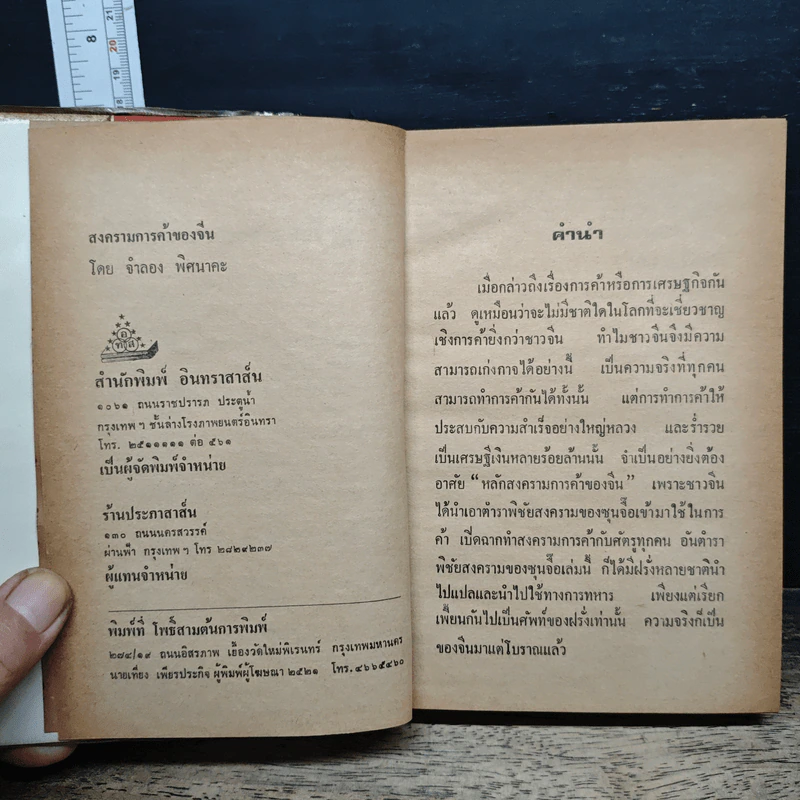 8
21
20
19
18
สงครามการค้าของจีน
โดย จำลอง พิศนาคะ
สำนักพิมพ์ อินทราสาส์น
๑๐๖๑ ถนนราชปรารภ ประตูน้ำ
กรุงเทพ ฯ ชั้นล่างโรงภาพยนตร์อินทรา
โทร. ๒๕๑๑๑๑๑ ต่อ ๕๖๑
เป็นผู้จัดพิมพ์จำหน่าย
ร้านประภาสาส์น
๑๓๐ ถนนนครสวรรค์
ผ่านฟ้า กรุงเทพ ฯ โทร ๒๘๒๙๒๓๗
ผู้แทนจำหน่าย
พิมพ์ที่ โพธิ์สามต้นการพิมพ์
๒๗๘/๑๙ ถนนอิสรภาพ เยื้องวัดใหม่พิเรนทร์ กรุงเทพมหานคร
นายเที่ยง เพียรประกิจ ผู้พิมพ์ผู้โฆษณา ๒๕๒๑ โทร. ๔๖๖๕๔๖๐
คำนำ
เมื่อกล่าวถึงเรื่องการค้าหรือการเศรษฐกิจกัน
แล้ว ดูเหมือนว่าจะไม่มีชาติใดในโลกที่จะเชี่ยวชาญ
เชิงการค้ายิ่งกว่าชาวจีน ทำไมชาวจีนจึงมีความ
สามารถเก่งกาจได้อย่างนี้ เป็นความจริงที่ทุกคน
สามารถทำการค้ากันได้ทั้งนั้น แต่การทำการค้าให้
ประสบกับความสำเร็จอย่างใหญ่หลวง และร่ำรวย
เป็นเศรษฐีเงินหลายร้อยล้านนั้น จำเป็นอย่างยิ่งต้อง
อาศัย “หลักสงครามการค้าของจีน” เพราะชาวจีน
ได้นำเอาตำราพิชัยสงครามของซุนจื๊อเข้ามาใช้ในการ
ค้า เปิดฉากทำสงครามการค้ากับศัตรูทุกคน อันตำรา
พิชัยสงครามของซุนจื๊อเล่มนี้ ก็ได้มีฝรั่งหลายชาตินำ
ไปแปลและนำไปใช้ทางการทหาร เพียงแต่เรียก
เพี้ยนกันไปเป็นศัพท์ของฝรั่งเท่านั้น ความจริงก็เป็น
ของจีนมาแต่โบราณแล้ว